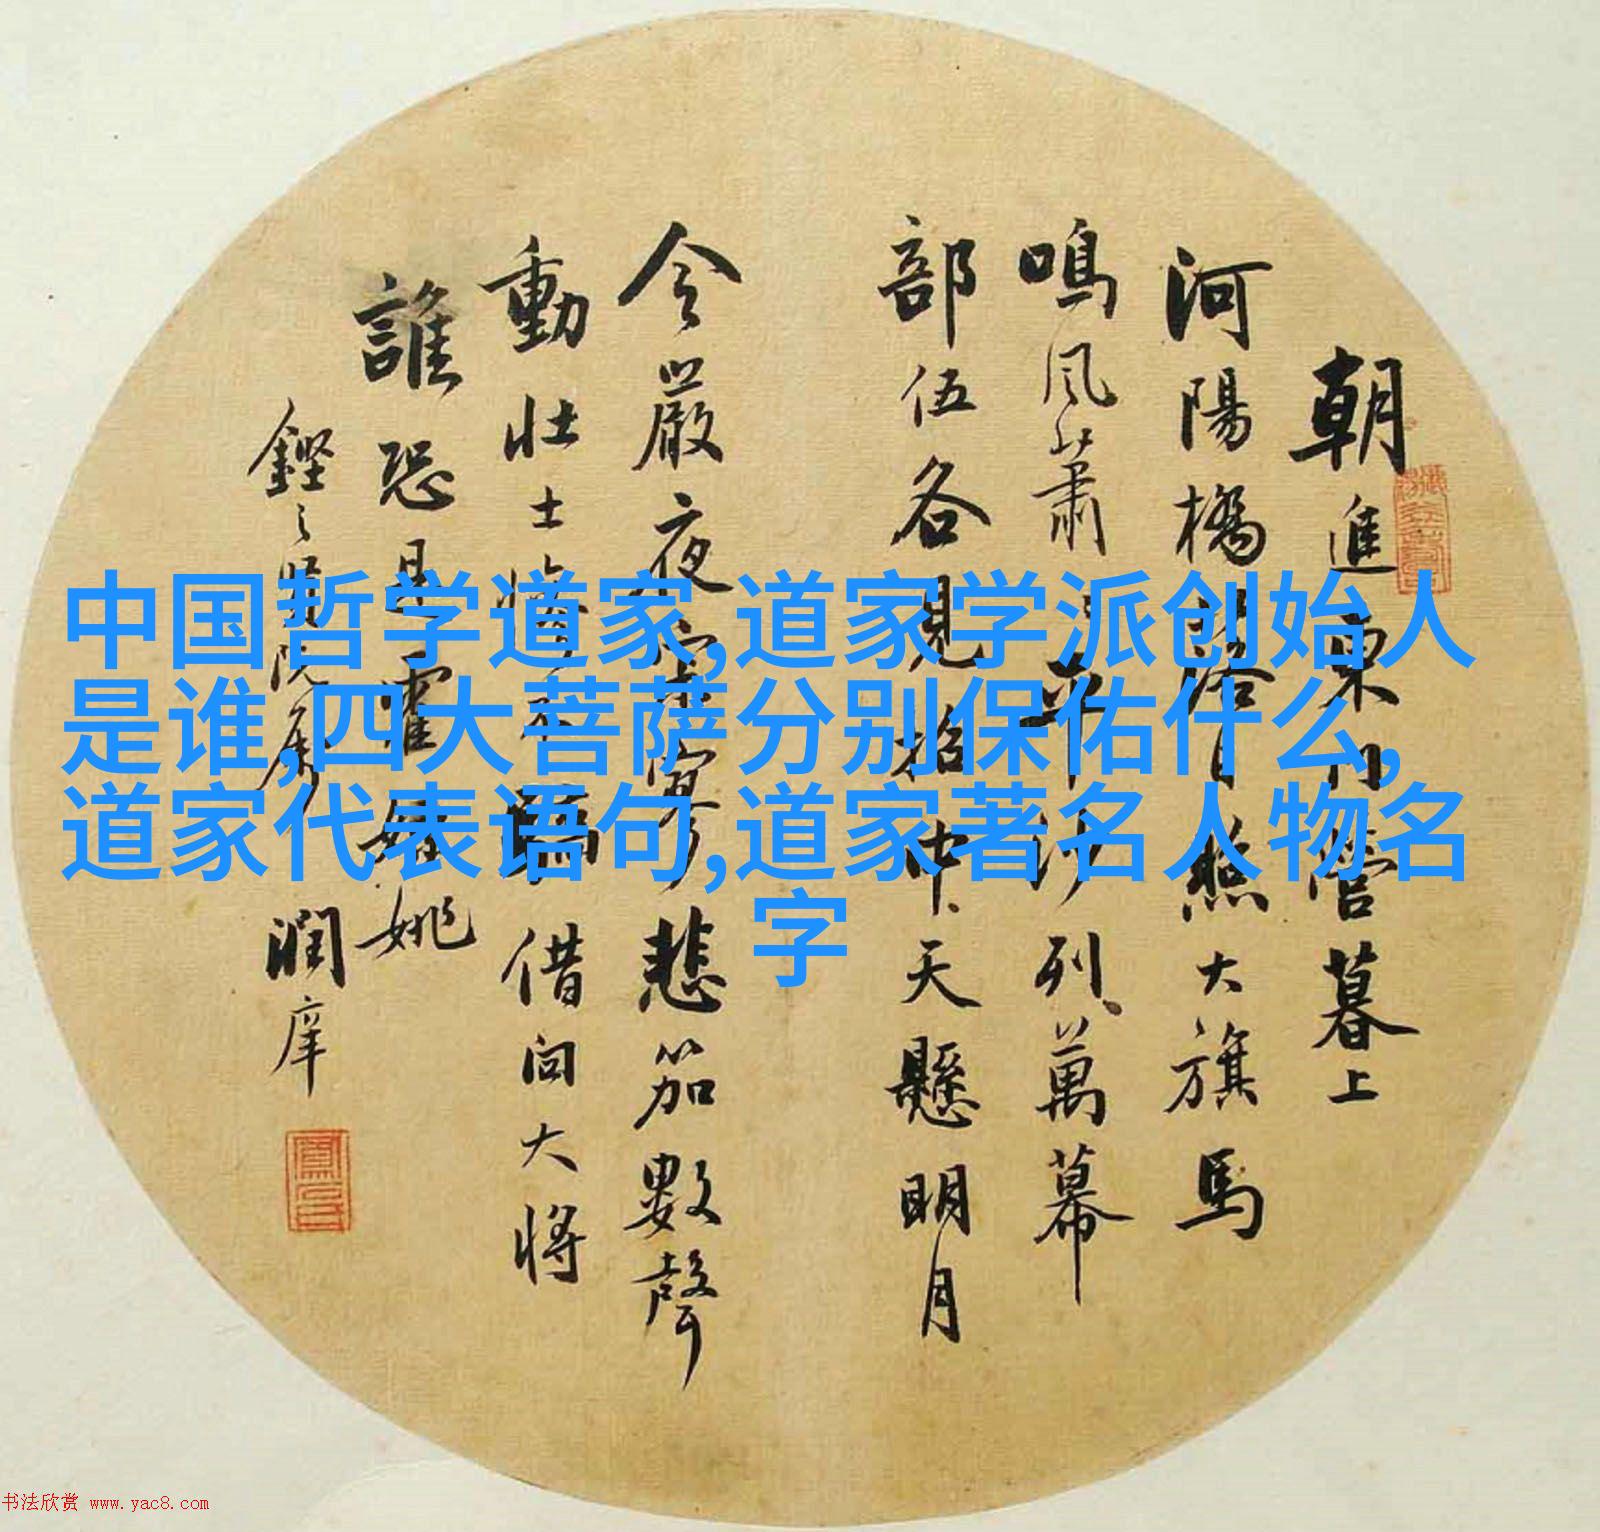 朝進東門營暮上
河陽橋落日照大旗馬
鳴風蕭平沙列萬幕
部伍各見招中天懸明月
令嚴夜寂寥悲笳數聲
動壯士慘不驕借問大將
誰恐是霍嫖姚
鏗之賢阮屬 潤庠
中国哲学道家,道家学派创始人
是谁,四大菩萨分别保佑什么,
道家代表语句,道家著名人物名
字
书法欣赏 www.yac8.com